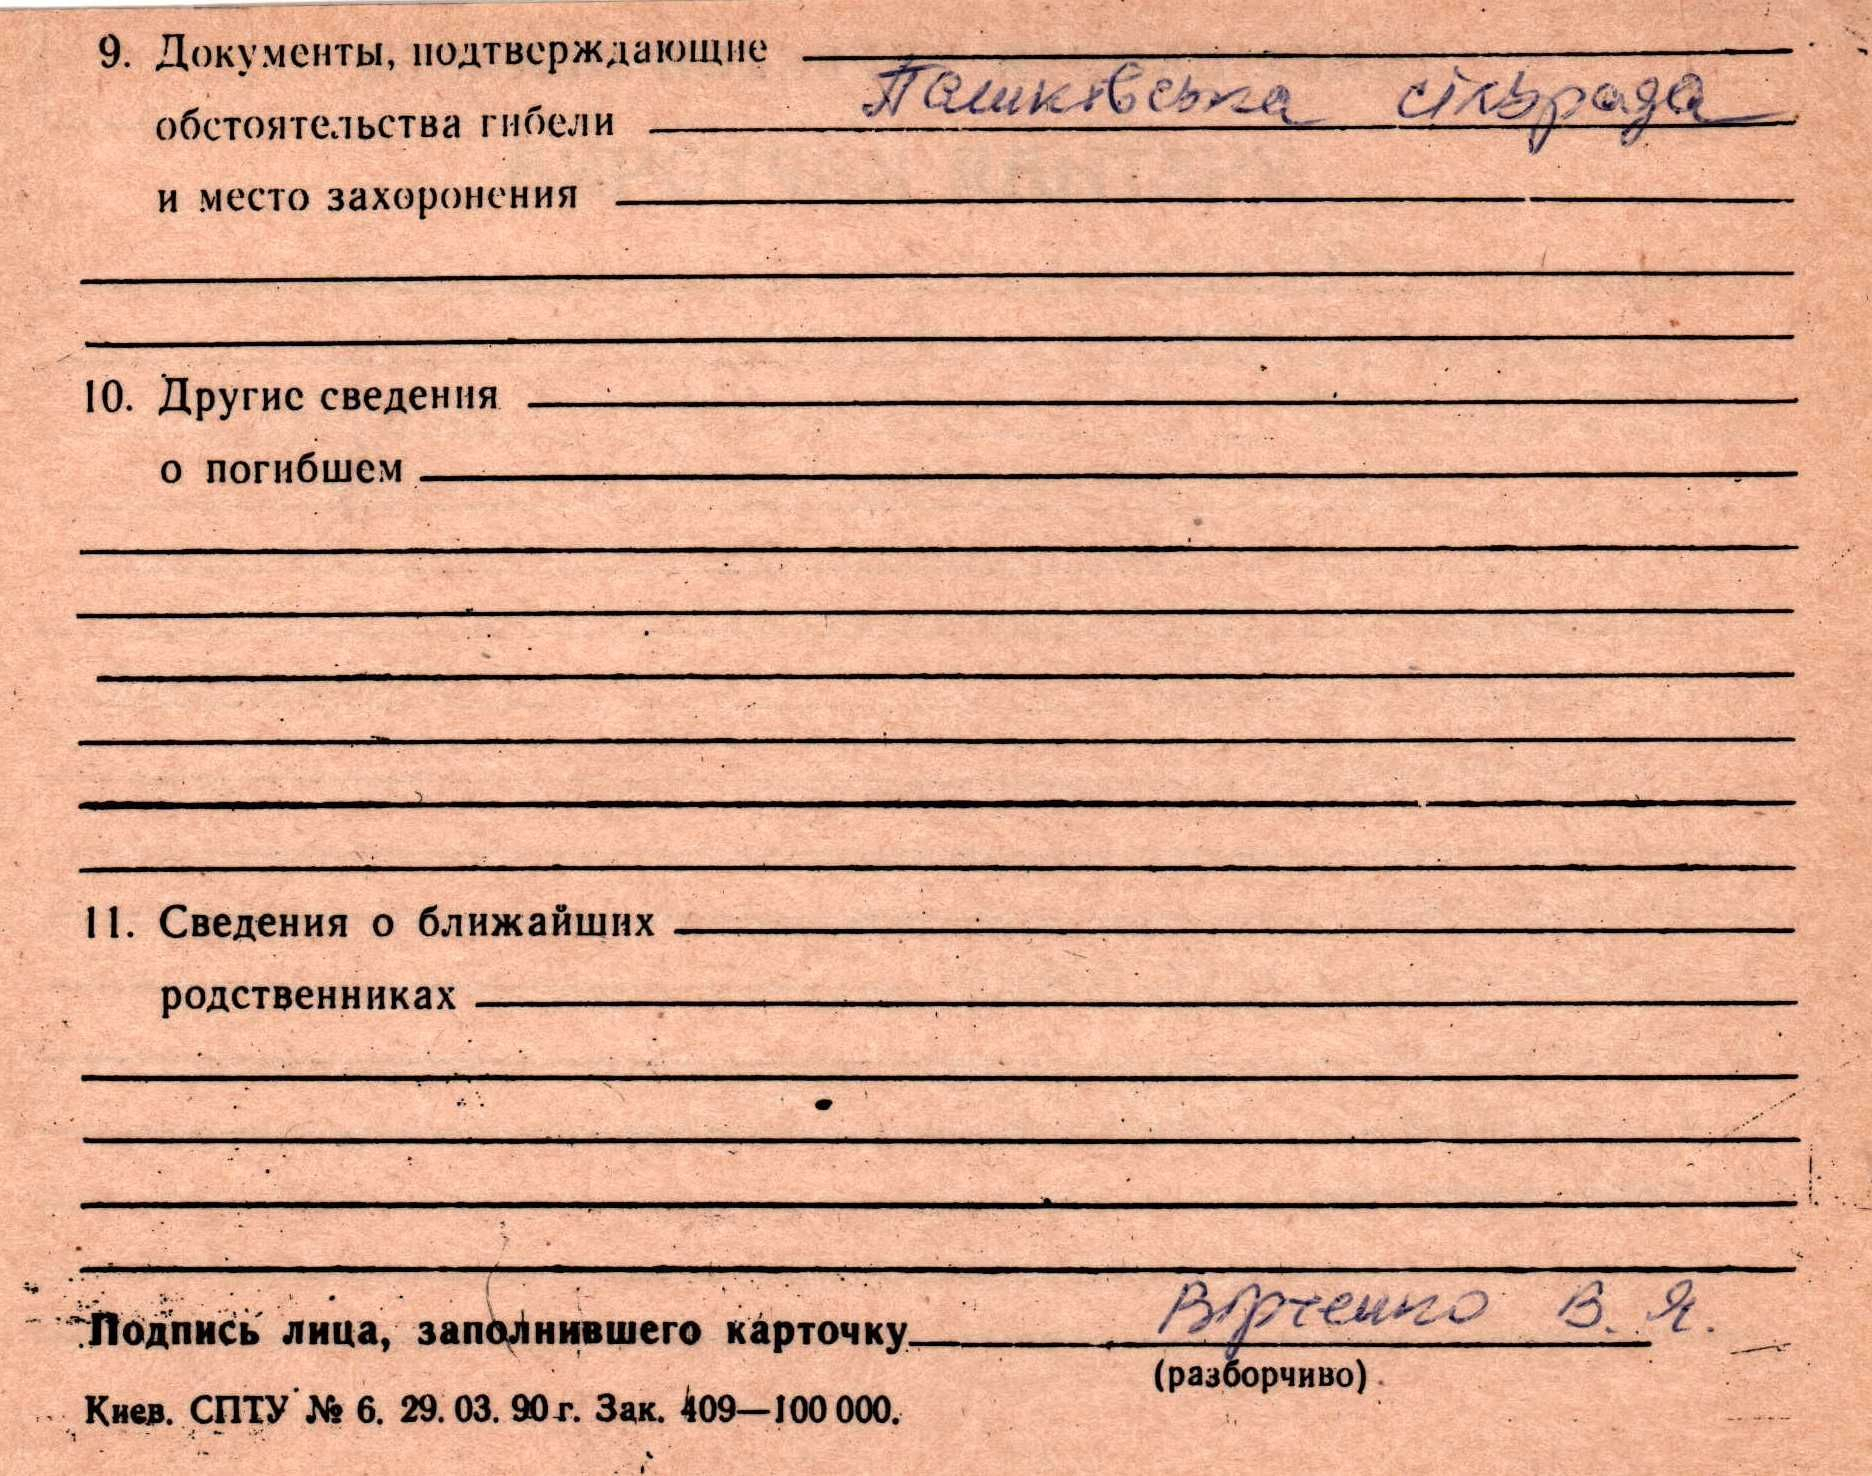 9. Документы, подтверждающие
обстоятельства гибели Пашківська сільрада
и место захоронения
10. Другие сведения
о погибшем
11. Сведения о ближайших
родственниках
Подпись лица, заполнившего карточку Вірченко В. Я.
(разборчиво)
Киев. СПТУ № 6. 29. 03. 90 г. Зак. 409—100 000.